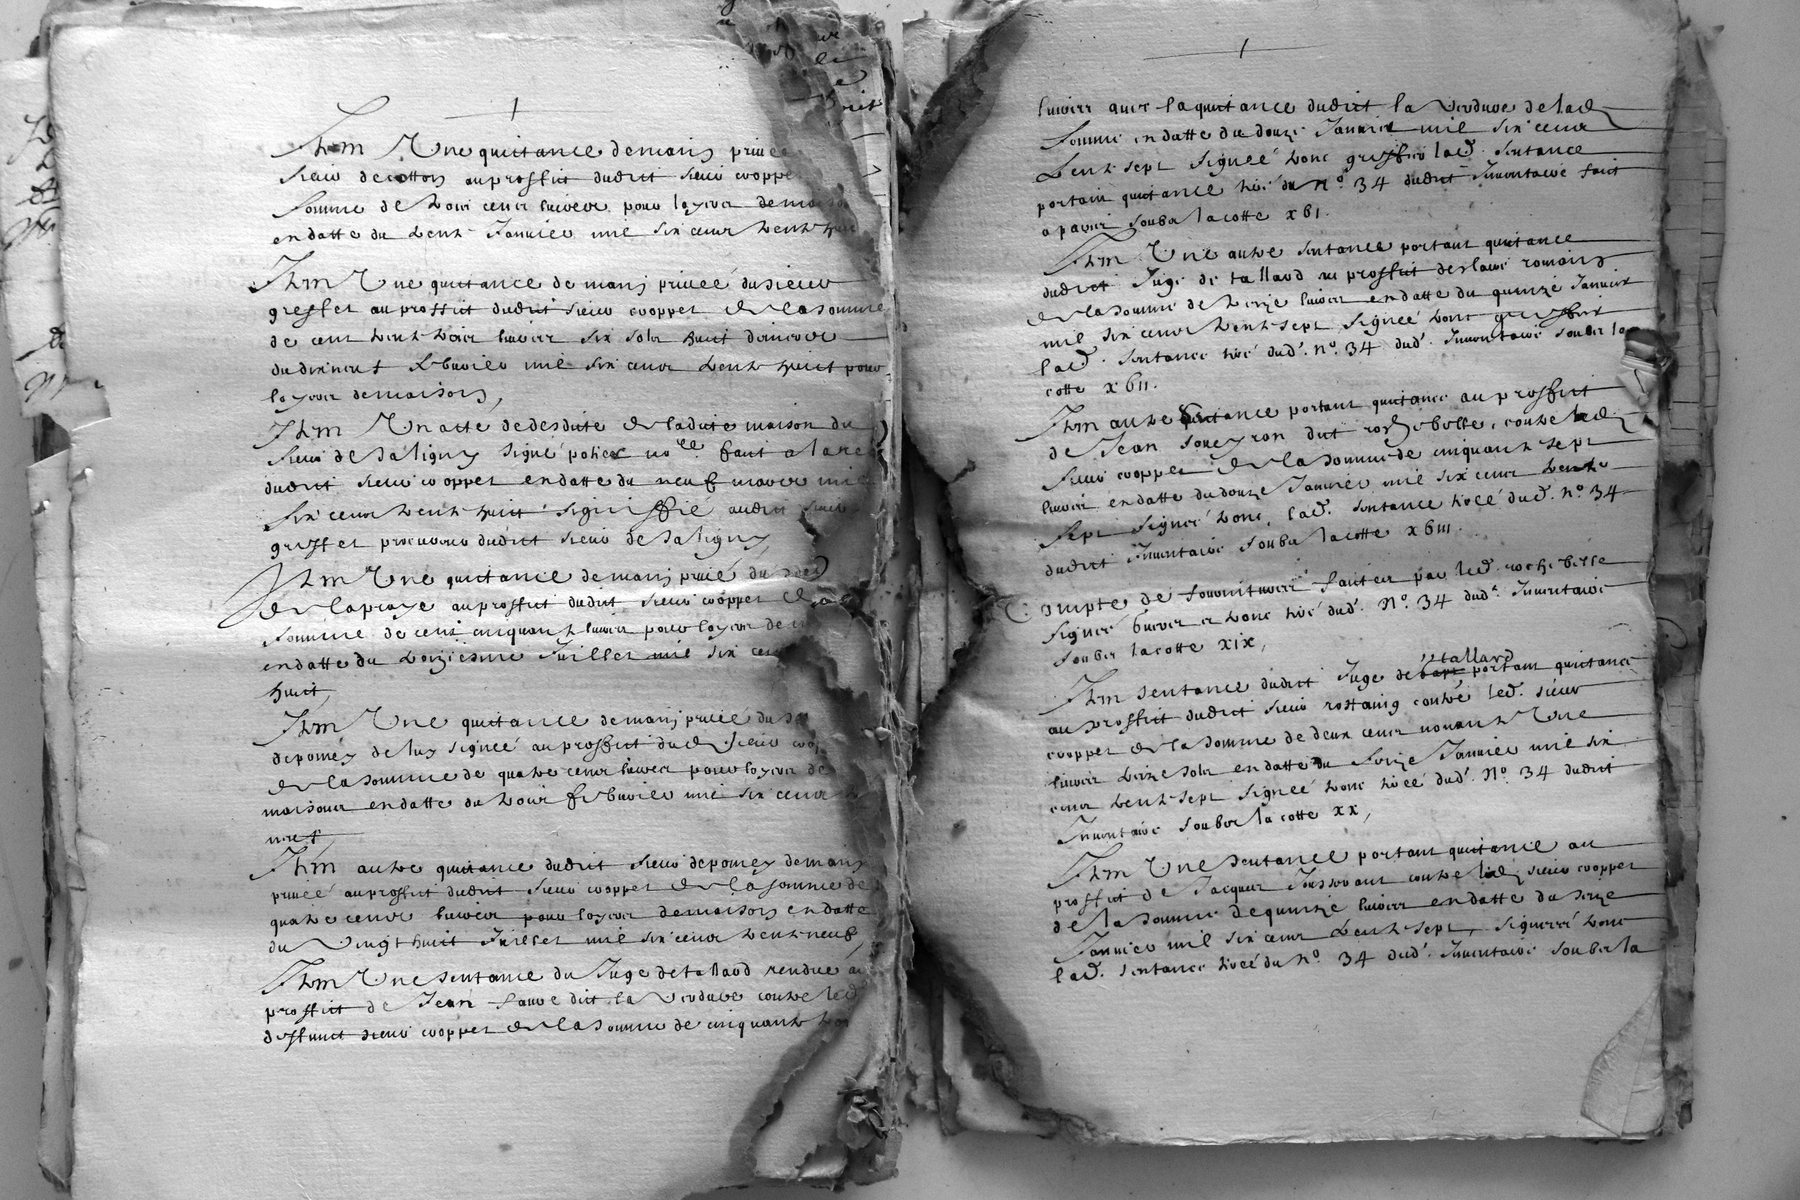 Item Une quittance de main privee
sieur de cotton au proffict dudict sieur cooppe
somme de trois cens livres pour loyer de maison
en datte du trente Janvier mil six cens trente huict
Item Une quittance de main privée du sieur
greffet au proffict dudict sieur cooppet de la somme
de cent trente trois livres six solz huict deniers
du dixneuf febvrier mil six cens trente huict pour
loyer de maison,
Item Un acte de desdite de ladite maison du
sieur de saligny signé pohier nore faict a la re
dudict sieur cooppet en datte du neuf mars mil
six cens trente huict signiffié audit sieur
greffet procureur dudict sieur de saligny
Item Une quittance de main privé du
de laproye au proffict dudict sieur cooppet de la
somme de cent cinquante livres pour loyer de
en datte du troiziesme Juillet mil six cens
huict,
Item Une quittance de main privée du
depomey de luy signeé au proffict dud. sieur coo
de la somme de quatre cens livres pour loyer de
maisons en datte du trois febvrier mil six cens
neuf
Item autre quittance dudict sieur depomey de main
privée au proffict dudict sieur cooppet de la somme de
quatre cens livres pour loyer de maison en datte
du vingt huict Juillet mil six cens trente neuf,
Item Une sentance du Juge de tallard rendue au
proffict de Jean faure dict la verdure contre led.
deffunct sieur cooppet de la somme de cinquante
livres avec la quittance dudict la verdure de lad.
somme en datte du douze Janvier mil six cens
trente sept signeé donc greffier lad. sentance
portant quittance tireé du no. 34 dudict Inventaire faict
a paris soubz la cotte xvi.
Item Une autre sentance portant quittance
dudict Juge de tallard au proffict de romaing
de la somme de treize livres en datte du quinzé Janvier
mil six cens trente sept signeé donc greffier
lad. sentance tiré dud. no. 34 dud. Inventaire soubz la
cotte xvii.
Item autre sentance portant quittance au proffict
de Jean soneyron dit rochebelle, contre led.
sieur cooppet de la somme de cinquante sept
livres en datte du douze Janvier mil six cens trente
sept signeé donc, lad. sentance tireé dud. no. 34
dudict Inventaire soubz la cotte xviii.
Compte de fournitures faictes par led. rochebelle
signeé donc tiré dud. No. 34 dud. Inventaire
soubz la cotte xix,
Item sentance dudict Juge de tallard portant quittance
au proffict dudict sieur rostaing contre led. sieur
cooppet de la somme de deux cens nonante Une
livres treize solz en datte du seize Janvier mil six
cens trente sept signeé donc tireé dud. No. 34 dudict
Inventaire soubz la cotte xx,
Item Une sentance portant quittance au
proffict de Jacques Jousserant contre led. sieur cooppet
de la somme de quinzé livres en datte du seize
Janvier mil six cens trente sept, signeé donc
lad. sentance tireé du no. 34 dud. Inventaire soubz la